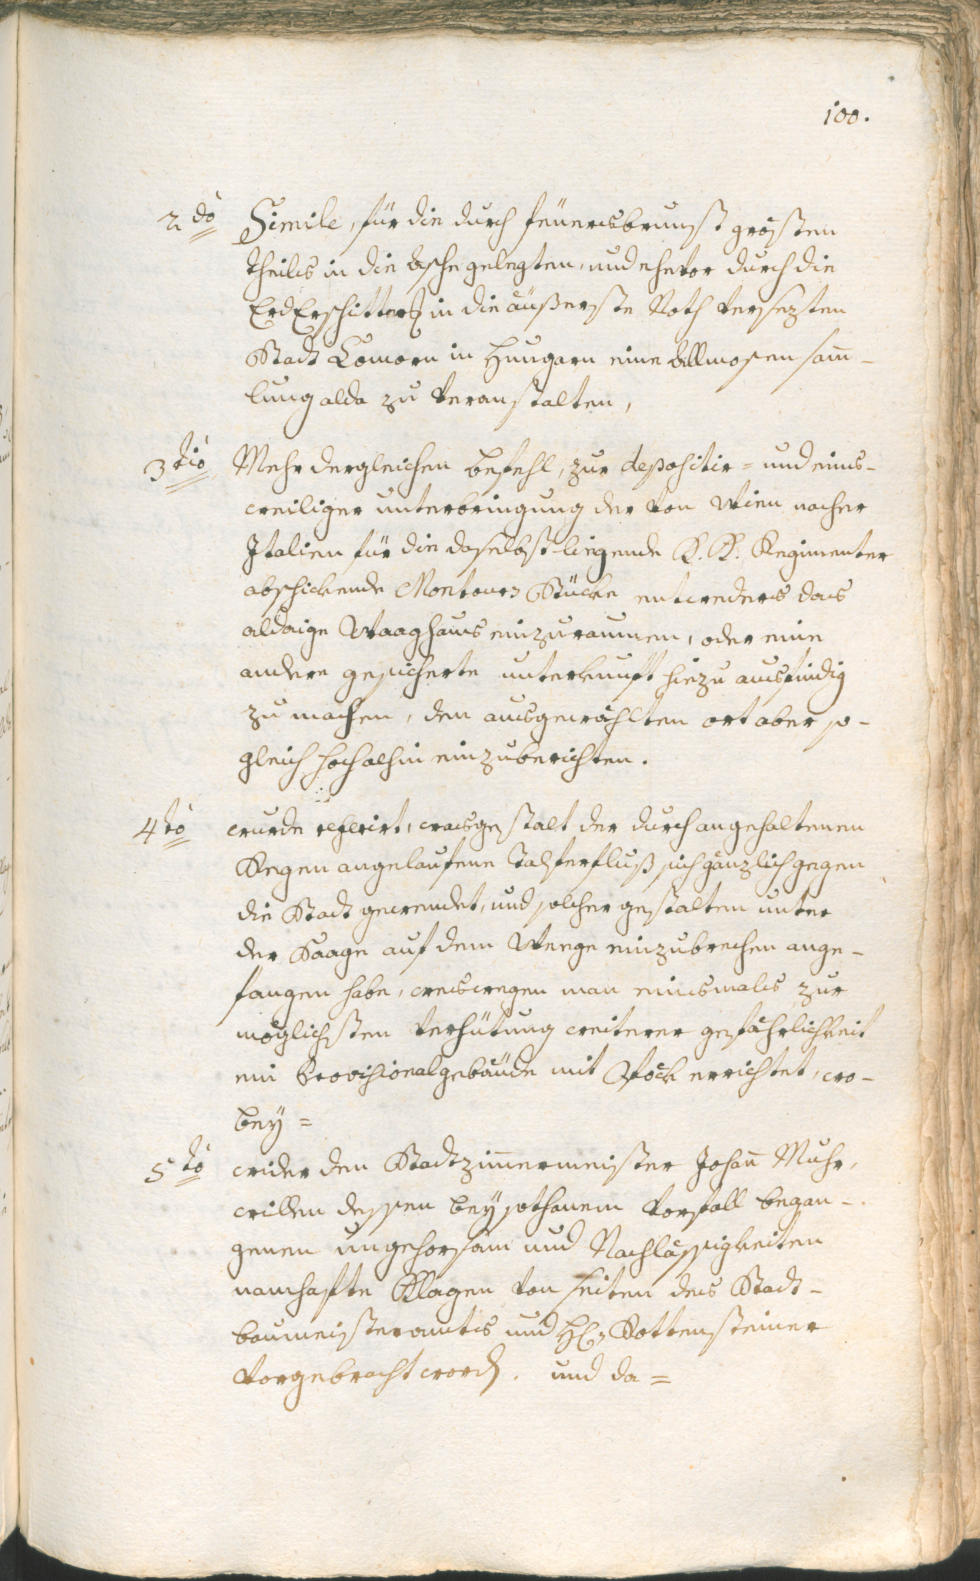 100.
2do Simile, für die durch feüersbrunst grösten
theils in die Asche gelegten, und ehevor durch die
ErdErschitter: in die äußerste Noth versezten
Stadt Comorn in Hungarn eine Allmosen sam̄-
lung alda zu veranstalten,
3tio Mehr dergleichen befehl, zur depositir- und eins-
weiliger unterbringung der von Wien nacher
Italien für die daselbst ligende K. K. Regimenter
abschickende Montours Stücke entweders das
aldaige Waaghaus einzuraumen, oder eine
andere gesicherte unterkunft hiezu ausfindig
zu machen, den ausgewählten ort aber so-
gleich hochalhin einzuberichten.
4to wurde referirt, wasgestalt der durch angehaltenen
Regen angelaufene Talferfluß sich gänzlich gegen
die Stadt gewendet, und solcher gestalten unter
der Saage auf dem Weege einzubrechen ange-
fangen habe, weswegen man einsmals zur
möglichsten verhütung weiterer gefährlichkeit
ein Provisionalgebäude mit Pöck errichtet, wo-
bey=
5to wider den Stadtzimmermeister Johan̄ Muhr,
willen dessen bey sothanem vorfall began-
genen ungehorsam und Nachlässigkeiten
namhafte Klagen von seiten des Stadt-
baumeisteramts und H: Rottensteiner
vorgebracht word: und da=